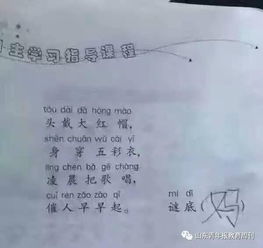 自主学习指导课程
tóu dài dà hóng mào
头戴大红帽，
shēn chuān wǔ cǎi yī
身穿五彩衣，
líng chén bǎ gē chàng
凌晨把歌唱，
cuī rén zǎo zǎo qǐ
催人早早起。
mí dǐ
谜底(妈)
山东青年报教育周刊